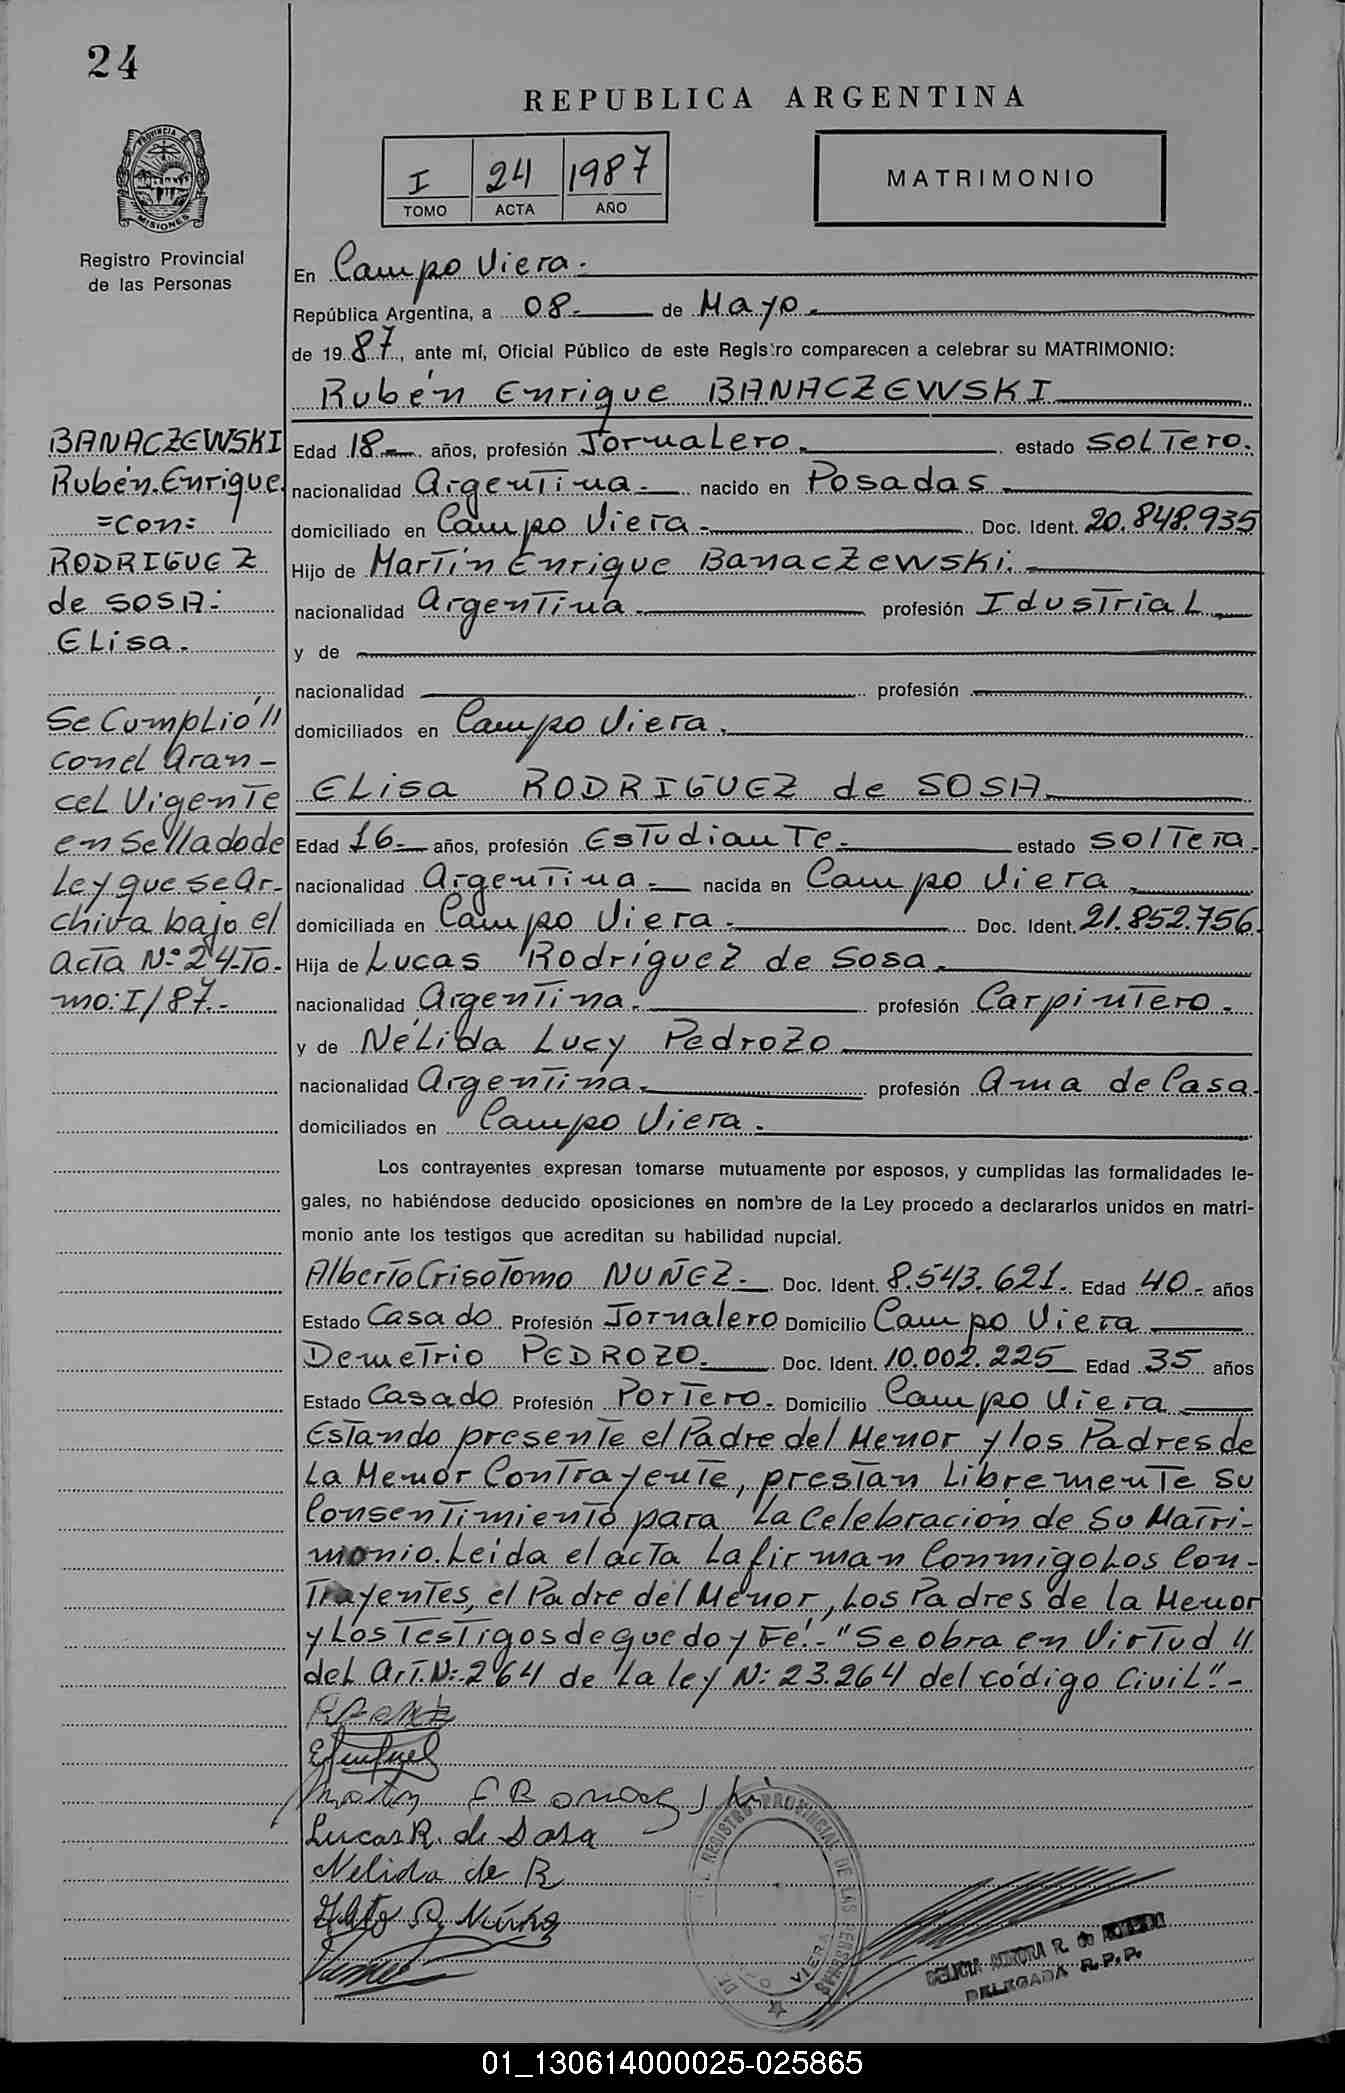 24
REPUBLICA ARGENTINA
PROVINCIA DE
MISIONES
I 24 1987
TOMO ACTA AÑO
MATRIMONIO
Registro Provincial
de las Personas
En Campo Viera.
República Argentina, a 08. de Mayo.
de 1987, ante mí, Oficial Público de este Registro comparecen a celebrar su MATRIMONIO:
Rubén Enrique BANACZEWSKI
BANACZEWSKI
Rubén Enrique
=con=
RODRIGUEZ
de SOSA:
Elisa.
Se Cumplió //
con el Aran-
cel Vigente
en Sellado de
Ley que se Ar-
chiva bajo el
Acta Nº 24-To-
mo: I/87.-
Edad 18 años, profesión Jornalero. estado SOLTero.
nacionalidad Argentina. nacido en Posadas
domiciliado en Campo Viera. Doc. Ident. 20.848.935
Hijo de Martín Enrique Banaczewski.
nacionalidad Argentina profesión Idustrial
y de
nacionalidad profesión
domiciliados en Campo Viera.
Elisa RODRIGUEZ de SOSA
Edad 16 años, profesión Estudiante. estado Soltera.
nacionalidad Argentina. nacida en Campo Viera.
domiciliada en Campo Viera. Doc. Ident. 21.852.756.
Hija de Lucas Rodríguez de Sosa.
nacionalidad Argentina. profesión Carpintero.
y de Nélida Lucy Pedrozo
nacionalidad Argentina. profesión Ama de Casa.
domiciliados en Campo Viera.
Los contrayentes expresan tomarse mutuamente por esposos, y cumplidas las formalidades le-
gales, no habiéndose deducido oposiciones en nombre de la Ley procedo a declararlos unidos en matri-
monio ante los testigos que acreditan su habilidad nupcial.
Alberto Crisotomo NUÑEZ. Doc. Ident. 8.543.621. Edad 40 años
Estado Casado Profesión Jornalero Domicilio Campo Viera
Demetrio PEDROZO. Doc. Ident. 10.002.225 Edad 35 años
Estado Casado Profesión Portero. Domicilio Campo Viera
Estando presente el Padre del Menor y los Padres de
La Menor Contrayente, prestan Libremente Su
Consentimiento para La Celebración de Su Matri-
monio. Leida el acta La firman Conmigo Los Con-
Trayentes, el Padre del Menor, Los Padres de la Menor
y Los Testigos de que doy Fé.- "Se obra en Virtud //
del Art. N: 264 de La ley N: 23.264 del código Civil".-
Lucas R. de Sosa
Nelida de R
REGISTRO PROVINCIAL DE LAS PERSONAS
VIERA
DELICIA AURORA R. de
DELEGADA R.P.P.
01_130614000025-025865